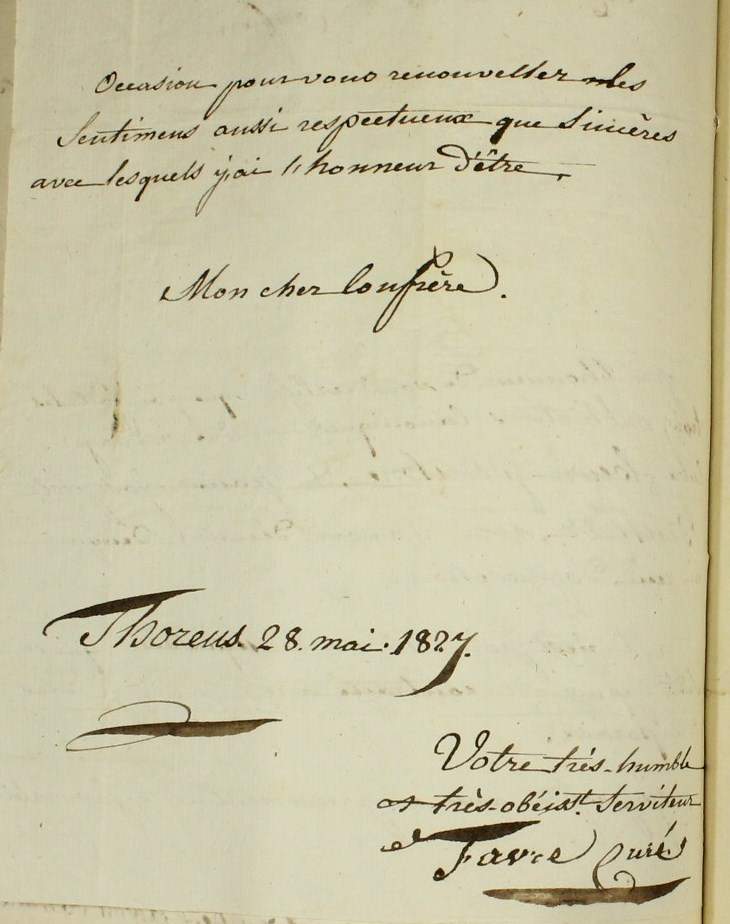 Occasion pour vous renouveller les
Sentimens aussi respectueux que Sincères
avec lesquels j'ai l'honneur d'être
Mon cher Confrère.
Thorens. 28. mai. 1827.
Votre très-humble
et très-obéisst. Serviteur
Favre Curé